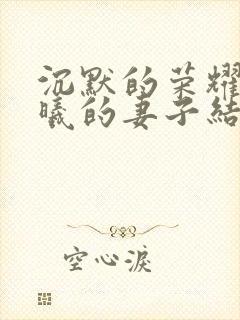 沉默的荣耀
曦的妻子结
空心淚